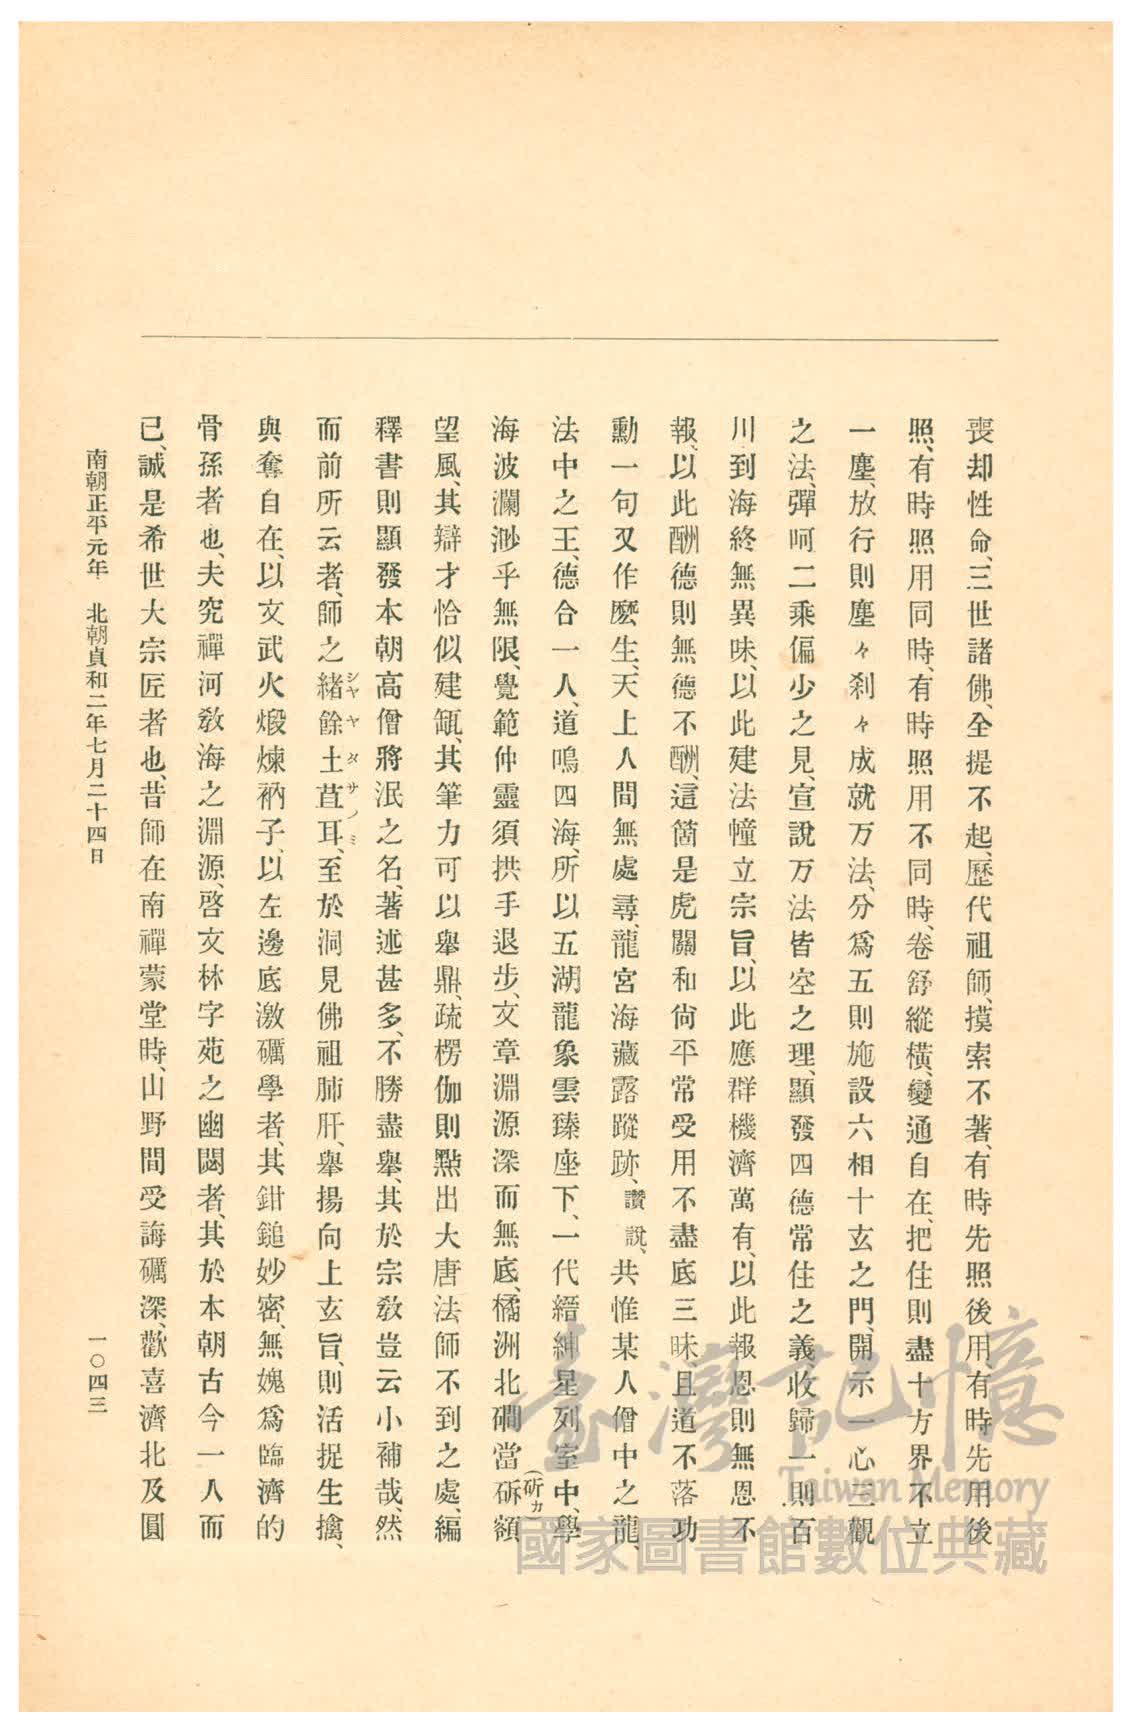 喪却性命、三世諸佛、全提不起、歷代祖師、摸索不著、有時先照後用、有時先用後
照、有時照用同時、有時照用不同時、卷舒縱橫、變通自在、把住則盡十方界不立
一塵、放行則塵々刹々成就万法、分爲五則施設六相十玄之門、開示一心三觀
之法、彈呵二乘偏少之見、宣說万法皆空之理、顯發四德常住之義收歸一則百
川到海終無異味、以此建法幢立宗旨、以此應群機濟萬有、以此報恩則無恩不
報、以此酬德則無德不酬、這箇是虎關和尙平常受用不盡底三昧且道不落功
勳一句又作麽生、天上人間無處尋、龍宮海藏露蹤跡、讚說、共惟某人僧中之龍、
法中之王、德合一人、道鳴四海、所以五湖龍象雲臻座下、一代縉紳星列室中、學
海波瀾渺乎無限、覺範仲靈須拱手退步、文章淵源深而無底、橘洲北磵當斫額
(斫カ)
望風、其辯才恰似建瓴、其筆力可以舉鼎、疏楞伽則點出大唐法師不到之處、編
釋書則顯發本朝高僧將泯之名、著述甚多、不勝盡舉、其於宗敎豈云小補哉、然
而前所云者、師之緖餘土苴耳、至於洞見佛祖肺肝、舉揚向上玄旨、則活捉生擒、
シヤヤタサノミ
與奪自在、以文武火煅煉衲子、以左邊底激礪學者、其鉗鎚妙密、無媿爲臨濟的
骨孫者也、夫究禪河敎海之淵源、啓文林字苑之幽閟者、其於本朝古今一人而
已、誠是希世大宗匠者也、昔師在南禪蒙堂時、山野間受誨礪深、歡喜濟北及圓
南朝正平元年 北朝貞和二年七月二十四日 一〇四三
臺灣記憶
Taiwan Memory
國家圖書館數位典藏